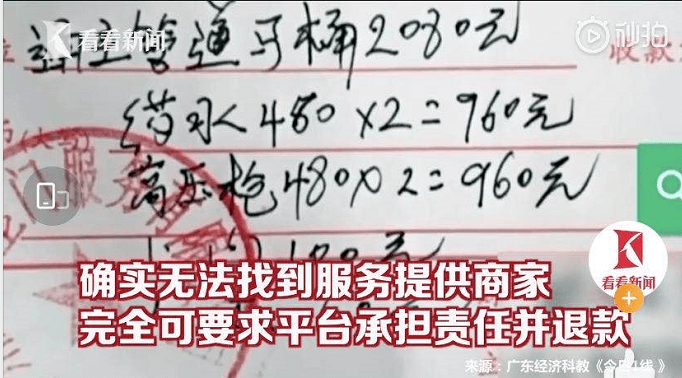 看看新闻
秒拍
通马桶2080元
收款
药水480×2=960元
高压枪480×2=960元
门服务
看看新闻
确实无法找到服务提供商家
完全可要求平台承担责任并退款
来源:广东经济科教《今日一线》